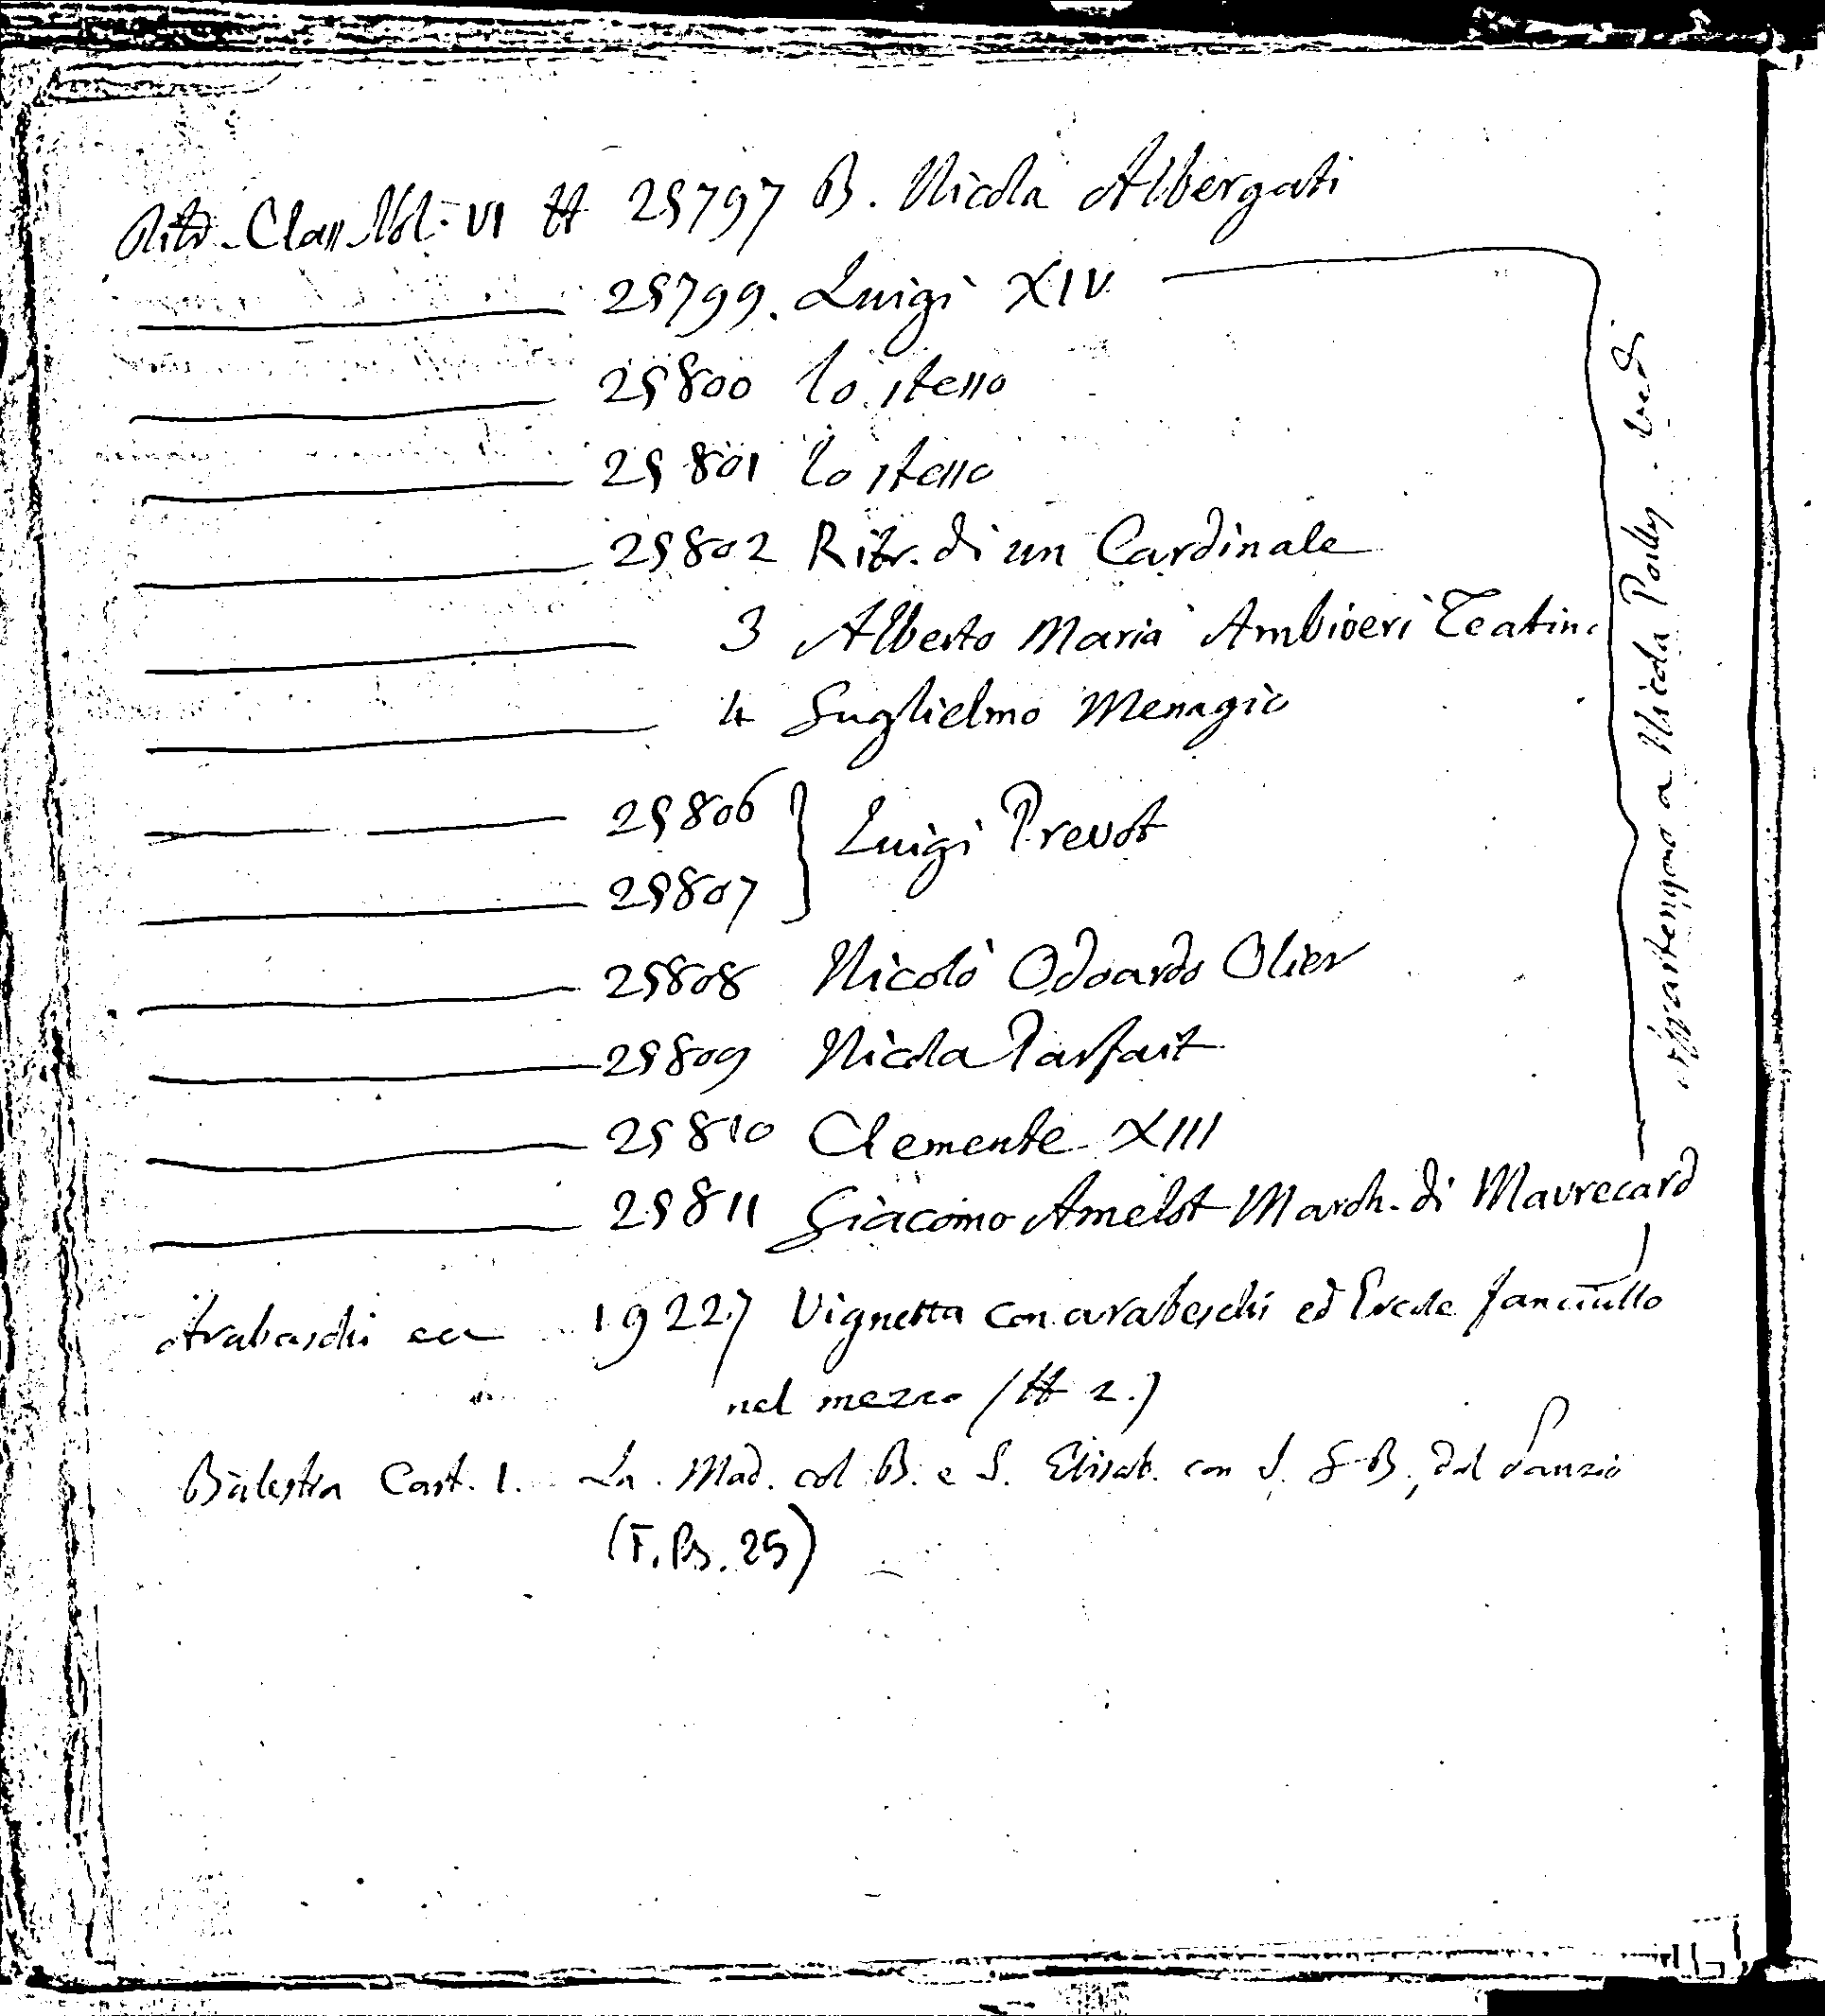 Ritr. Class. Vol. VI # 25797 B. Nicola Albergati
25799. Luigi XIV
25800 lo stesso
25801 lo stesso
25802 Ritr. di un Cardinale
3 Alberto Maria Ambiveri Teatino
4 Guglielmo Menagio
25806
Luigi Prevot
25807
25808 Nicolò Odoardo Olier
25809 Nicola Parfait
25810 Clemente XIII
25811 Giacomo Amelot March. di Maurecard
appartengono a Nicola Poilly. vedi
Arabeschi ecc 19227 Vignetta con arabeschi ed Ercole fanciullo
nel mezzo (# 2.)
Balestra Cart. 1. La Mad. col B. e S. Elisab. con S. G B, dal Sanzio
(F. Bs. 25)